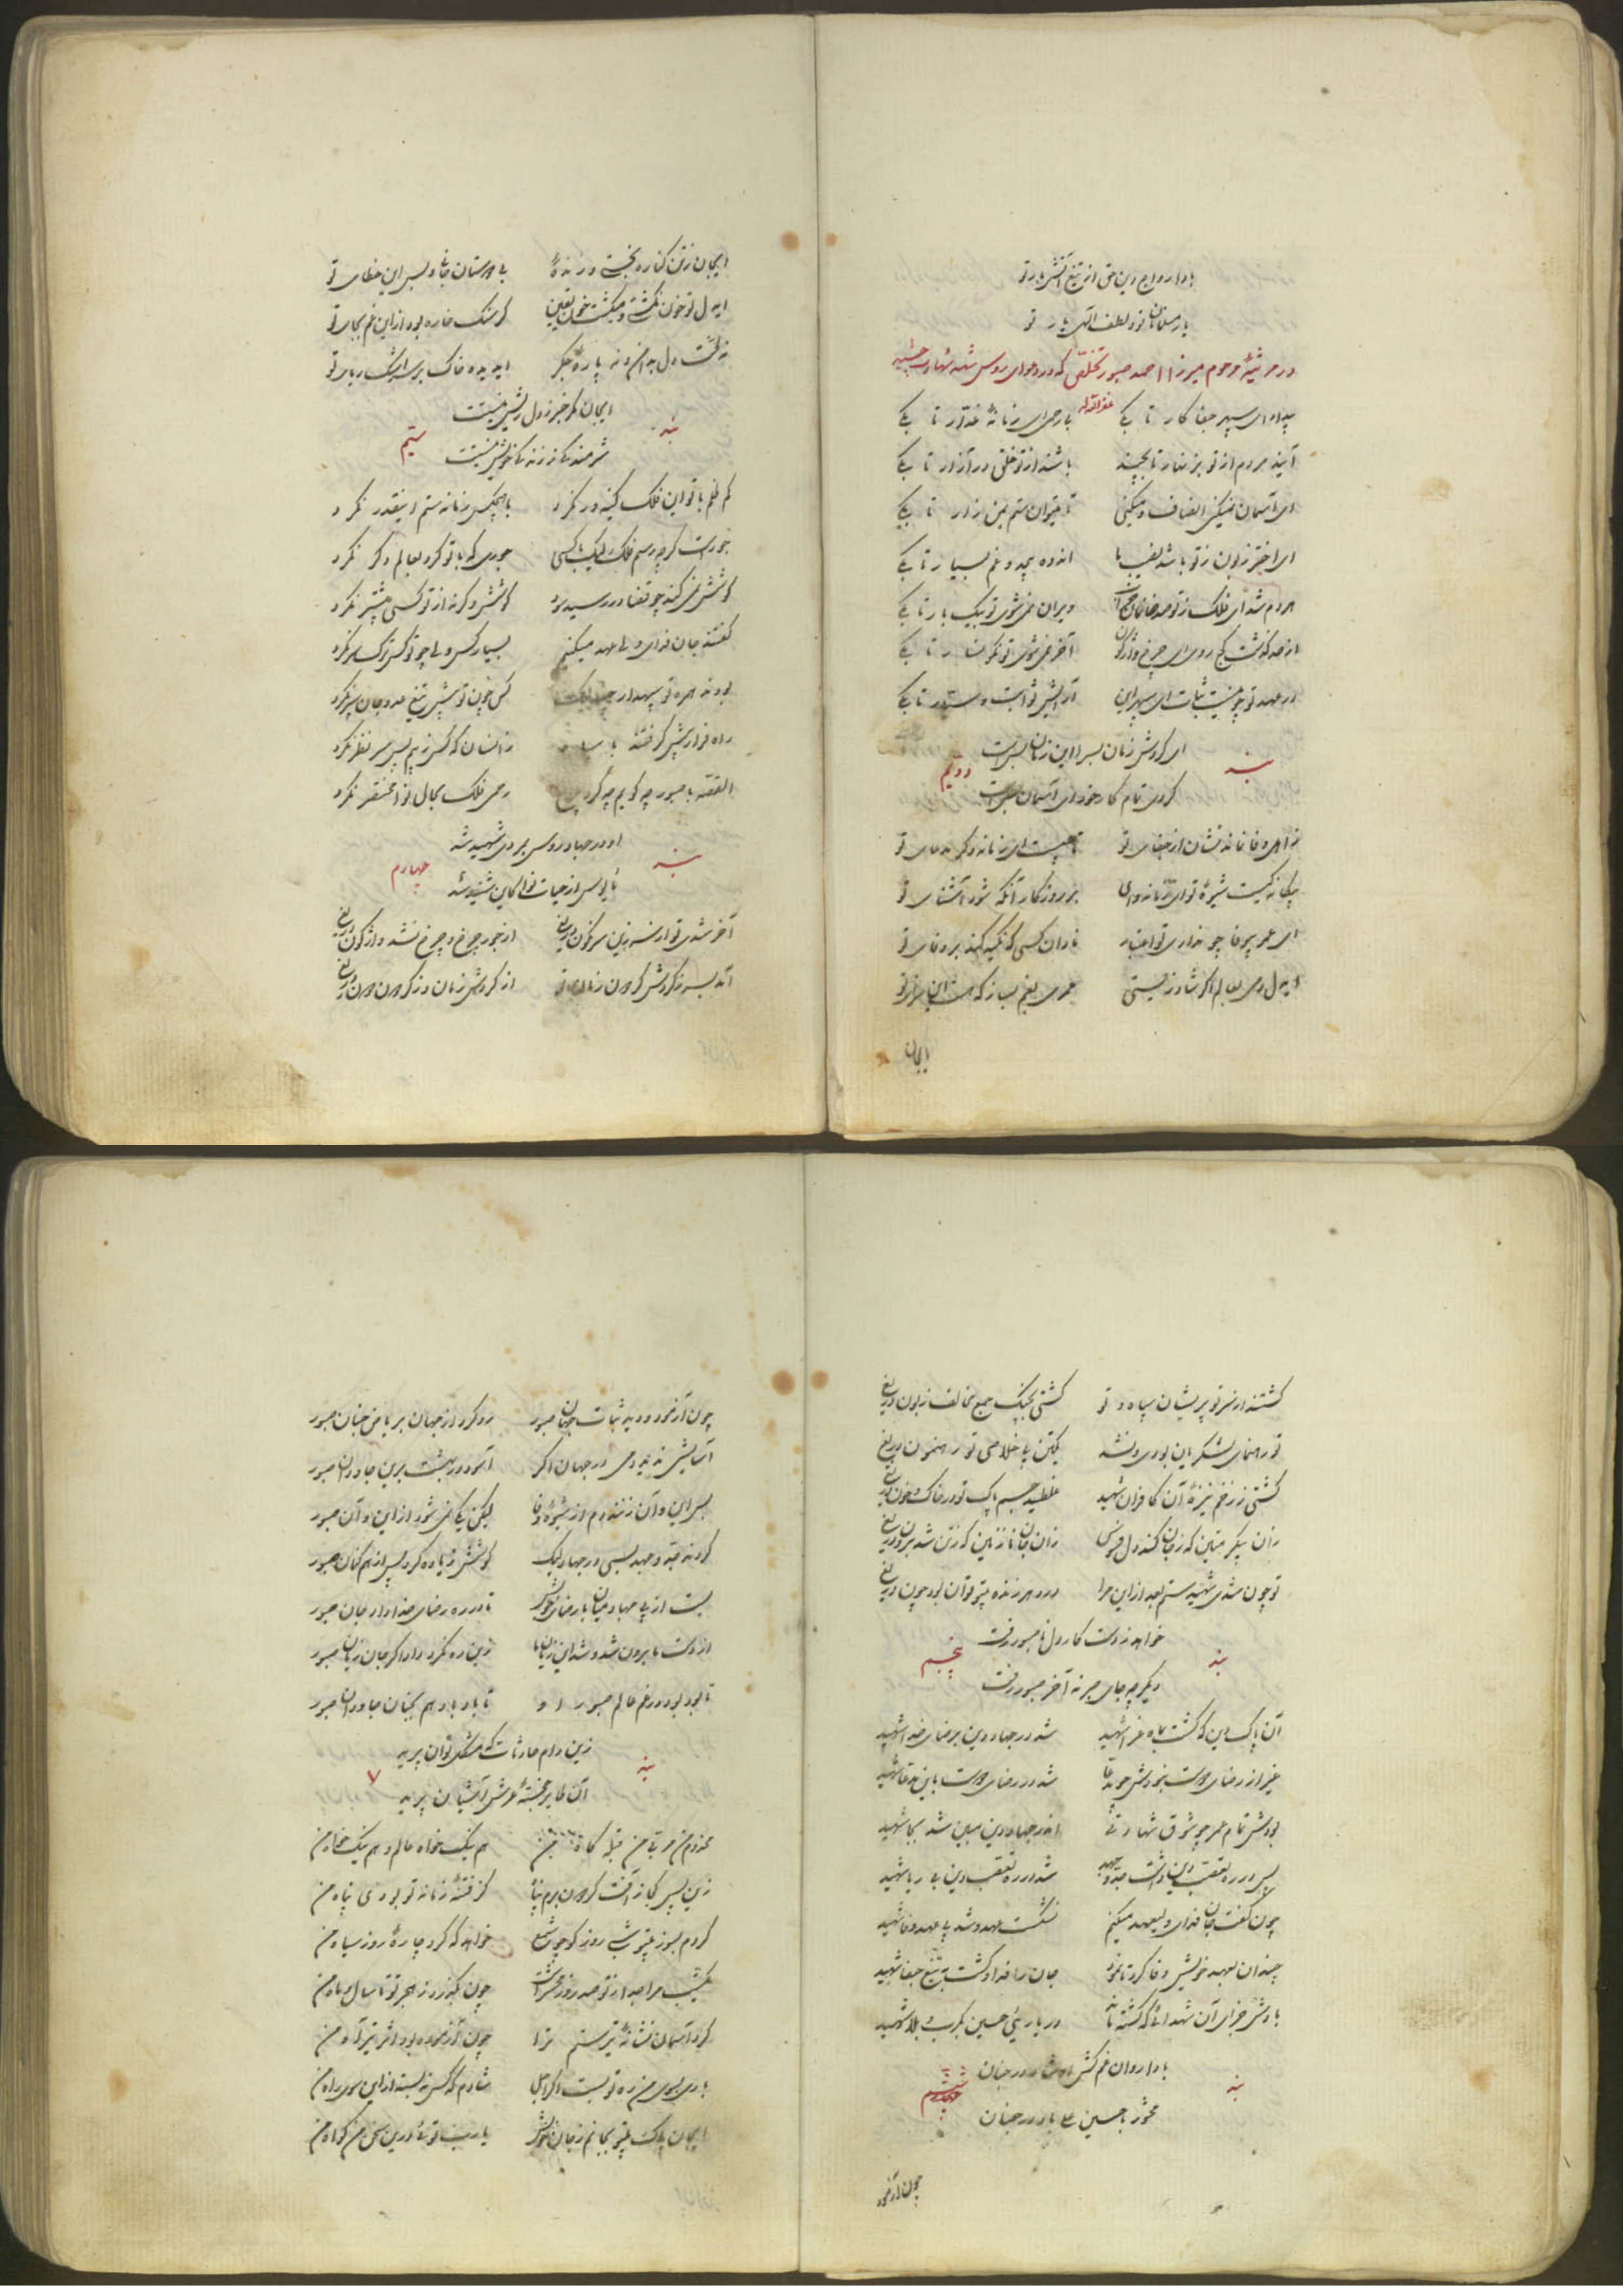 بادا رواج دین حق از تیغ آتش بار تو
یار مسلمانان تو و لطف الهی یار تو
در مرثیهٔ مرحوم میرزا احمد صبور تخلص که در دعوای روس شهد شهادت چشید
غفر الله له
بیداد ای سپهر جفا کار تا بکی بارحمی ای زمانهٔ غدار تا بکی
آیند مردم از تو بزنهار تا بچند باشند از تو خلق در آزار تا بکی
ای آسمان نمیکنی انصاف و میکنی تا میتوان ستم بمن زار تا بکی
ای اختر زبون ز تو باشد نصیب ما اندوه بیحد و غم بسیار تا بکی
هر دم شد ای فلک ز تو صد خانمان خراب ویران نمی شوی تو بیک بار تا بکی
از حد گذشت کج روی ای چرخ واژگون آخر نمی شوی تو نگونسار تا بکی
در عهد تو چو نیست ثبات ای سپهر این آرامش ثوابت و سیار تا بکی
ای گردش زمان بسرا این زمان بس است
بند دویم
کردی تمام کار خود ای آسمان بس است
نه اهل وفا نماند نشان از جفای تو تا چیست ای زمانه دگر مدعای تو
بیگانگیست شیوهٔ تو ای زمانه وای بر روزگار آنکه شود آشنای تو
ای عمر بیوفا چو نداری تو اعتبار نادان کسی که تکیه کند بر وفای تو
ایدل دمی بعالم اگر شاد زیستی عمری بغم بساز که هست این سزای تو
ایجان
ایجان ز تن کناره بجستی و زنده بی دوستان بجا و بس این خطای تو
ایدل تو خون نگشتی و میگشت خون یقین گر سنگ خاره بود از این غم بجای تو
نگذشت دل بدامن و نه پارهٔ جگر ایدیده خاک بر سر اشک ریای تو
ایجان مگر خبر ز دل ریش نیستت
بند سیم
شرمندگی ز زندگی خویش نیستت
کم ظلم با تو این فلک کینه ور نکرد با هیچکس زمانه ستم اینقدر نکرد
جور است گرچه رسم فلک لیک با کسی جوری که با تو کرد بعالم دگر نکرد
کوشش نمی کند چو قضا در رسید سود کوشش وگرنه از تو کسی بیشتر نکرد
گفتند جان فدای ولیعهد میکنیم بسیار کس ولی چو تو کس ترک سر نکرد
بودند همره تو سپهدار چند لیک کس چون تو پیش تیغ عدو جان سپر نکرد
راه فرار پیش گرفتند زانسان که کس ز بیم بپس سر نظر نکرد
القصه با صبور چه گویم چه کرد چرخ رحمی فلک بحال نوا مختصر نکرد
او در جهاد روس بمردی شهید شد
بند چهارم
مأیوس از حیات نوا کاین شنید شد
آخر شدی تو از سر زین سرنگون دریغ از جور چرخ و چرخ نشد واژگون دریغ
آمد بسر ز گردش گردون زمان تو از گردش زمان و ز گردون دون دریغ
گشتند از سر تو پریشان سپاه و تو گشتی بچنگ جمع مخالف زبون دریغ
تو رهنمای لشکریان بودی و نشد یکتن پی خلاصی تو رهنمون دریغ
گشتی ز زخم نیزهٔ آن کافران شهید غلطید جسم پاک تو در خاک و خون دریغ
زان پیکر متین که ز جان کند دل فسوس زان جان نازنین که ز تن شد برون دریغ
تو چون شدی شهید ستم بعد از این مرا در دهر زنده بیتو توان بود چون دریغ
خواهد ز دست کار دل ناصبور رفت
بند پنجم
دیگر چه جای صبر نه آخر صبور رفت
آن پاک دین که گشت بماه غرا شهید شد در جهاد دین برضای خدا شهید
غیر از رضای دوست بخود ش چو مدعا شد در رضای دوست باین مدعا شهید
بودش تمام عمر چو شوق شهادتی اندر جهاد دین مبین شد بجا شهید
بس در ره تعصب دین داشت جد و جهد شد در ره تعصب دین بی ریا شهید
چون گفت جان فدای ولیعهد میکنم نشکست عهد و شد پی عهد وفا شهید
چندان بعهد خویش وفا کرد تا نمود جان را فدا و گشت به تیغ جفا شهید
بادش جزای آن شهدائی که گشته اند در یاری حسین بکرب و بلا شهید
بادا روان غم کش او شاد در جنان
بند ششم
محشور با حسین ع باد در جنان
چون آزمود
چون آزمود و دید ثبات جهان صبور رو کرد از جهان بریاض جنان صبور
آسایشی ندید دمی در جهان اگر آسود در بهشت برین جاودان صبور
بس این و آن زنند دم از شیوهٔ وفا لیکن یکی نمی شود از این و آن صبور
کردند جد و جهد بسی در جهاد لیک کوشش زیاده کرد بس از همکنان صبور
بست از پی جهاد میان با رضای خویش تا در ره رضای خدا داد جان صبور
از دست ما برون شد و شد این زیان ما زین ره نکرد داد اگر جان زیان صبور
تا بود بود در غم عالم صبور او تا باد باد هم بجنان جاودان صبور
زین دام حادثات که مشکل توان پرید
بند ۷
آن طایر خجستهٔ عرش آشیان پرید
مخدوم من مربی من قبله گاه من هم نیک خواه عالم و هم نیک خواه من
زین پس کجا ز آفت گردون برم پناه کز فتنهٔ زمانه تو بودی پناه من
کردم بسوز بیتو شبی روز کو چو شمع خواهد که کرد چارهٔ روز سیاه من
یکشب مرا جدا ز تو صد روز محشر است چون بگذرد ز هجر تو تا سال و ماه من
کرد آسمان نشانهٔ تیر ستم ترا چون آزموده بود اثر تیر آه من
باری بسوی من ره تو بست اگر اجل شادم که کس نه بسته از این سوی راه من
ایجان پاک بیتو بجانم ز جان خویش یا رب تو ئی درین سخن من گواه من